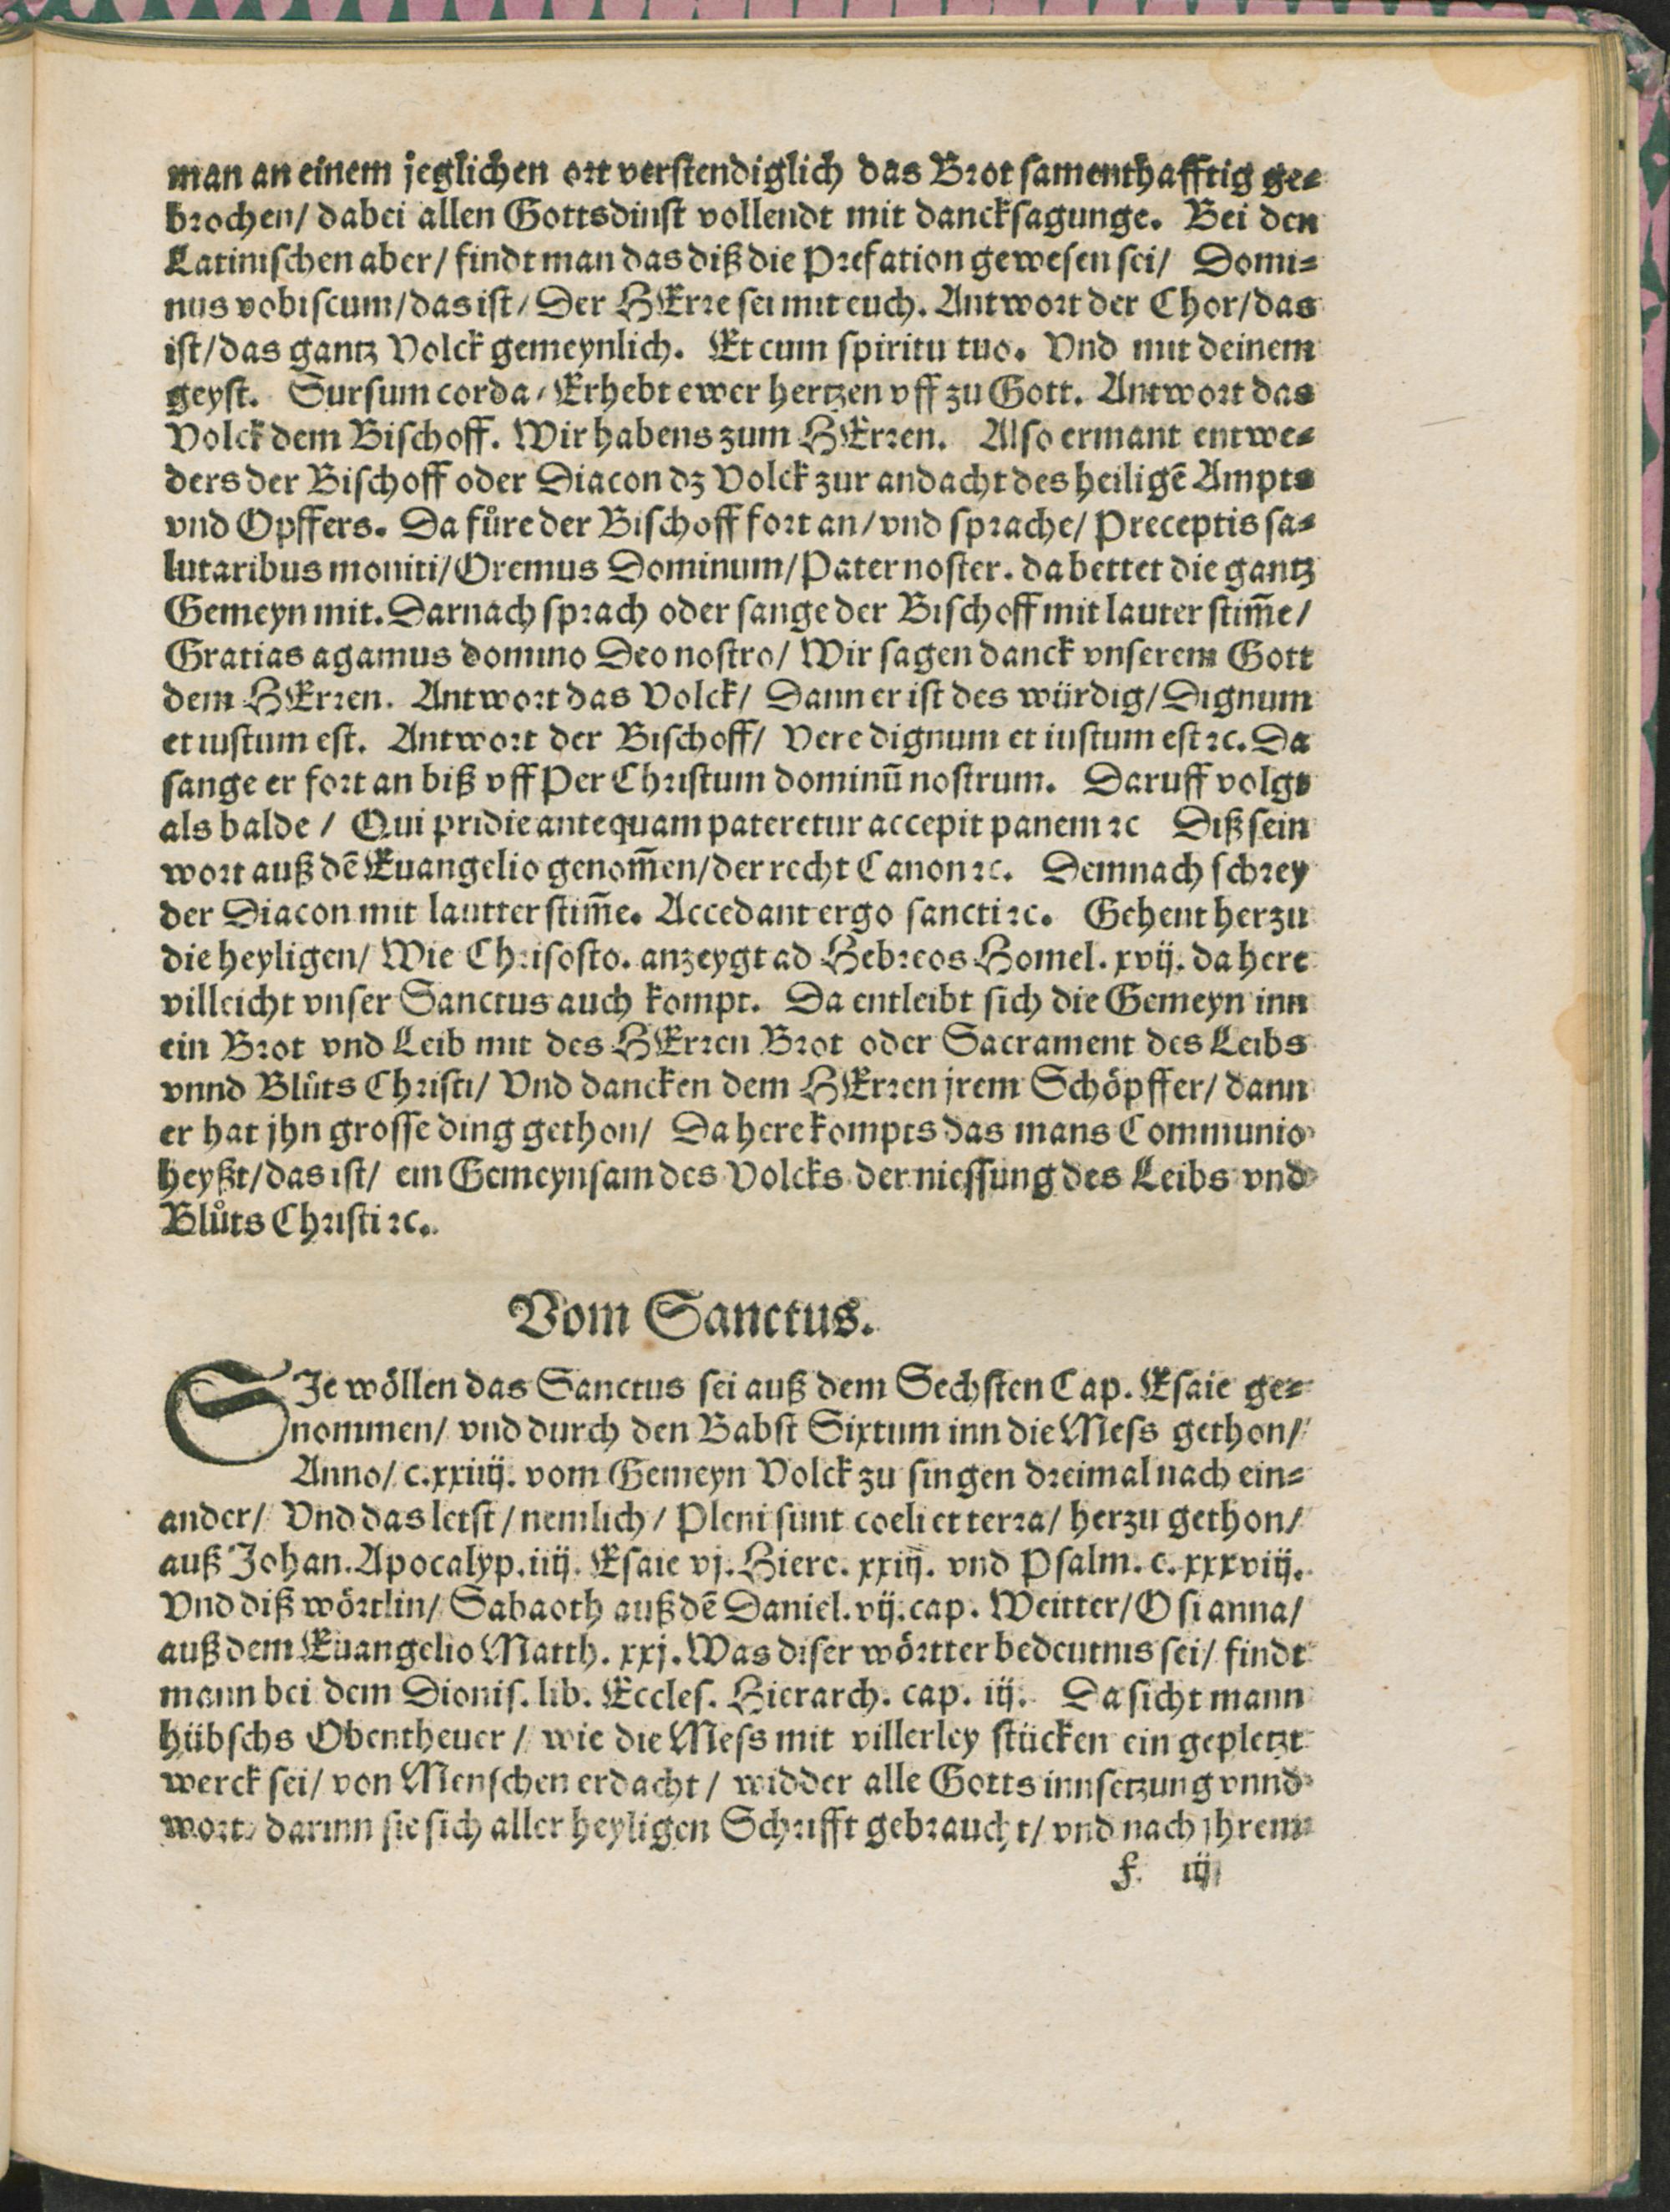 man an einem jeglichen ort verstendiglich das Brot samenthafftig ge⸗
brochen/ dabei allen Gottsdinst vollendt mit dancksagunge. Bei den
Latinischen aber/ findt man das diß die Prefation gewesen sei/ Domi⸗
nus vobiscum/ das ist/ Der HErre sei mit euch. Antwort der Chor/ das
ist/ das gantz Volck gemeynlich. Et cum spiritu tuo. Vnd mit deinem
geyst. Sursum corda/ Erhebt ewer hertzen vff zu Gott. Antwort das
Volck dem Bischoff. Wir habens zum HErren. Also ermant entwe⸗
ders der Bischoff oder Diacon dz Volck zur andacht des heiligē Ampts
vnd Opffers. Da fůre der Bischoff fort an/ vnd sprache/ Preceptis sa⸗
lutaribus moniti/ Oremus Dominum/ Pater noster. da bettet die gantz
Gemeyn mit. Darnach sprach oder sange der Bischoff mit lauter stim̃e/
Gratias agamus domino Deo nostro/ Wir sagen danck vnserem Gott
dem HErren. Antwort das Volck/ Dann er ist des würdig/ Dignum
et iustum est. Antwort der Bischoff/ Vere dignum et iustum est ꝛc. Da
sange er fort an biß vff Per Christum dominū nostrum. Daruff volgt
als balde / Qui pridie antequam pateretur accepit panem ꝛc Diß sein
wort auß dē Euangelio genom̃en/ der recht Canon ꝛc. Demnach schrey
der Diacon mit lautter stim̃e. Accedant ergo sancti ꝛc. Gehent herzu
die heyligen/ Wie Chrisosto. anzeygt ad Hebreos Homel. xvij. da here
villeicht vnser Sanctus auch kompt. Da entleibt sich die Gemeyn inn
ein Brot vnd Leib mit des HErren Brot oder Sacrament des Leibs
vnnd Blůts Christi/ Vnd dancken dem HErren jrem Schöpffer/ dann
er hat jhn grosse ding gethon/ Da here kompts das mans Communio
heyßt/ das ist/ ein Gemeynsam des Volcks der niessung des Leibs vnd
Blůts Christi ꝛc.
Vom Sanctus.
SJe wöllen das Sanctus sei auß dem Sechsten Cap. Esaie ge⸗
nommen/ vnd durch den Babst Sixtum inn die Mess gethon/
Anno/ c.xxiiij. vom Gemeyn Volck zu singen dreimal nach ein⸗
ander/ Vnd das letst/ nemlich/ Pleni sunt coeli et terra/ herzu gethon/
auß Johan. Apocalyp. iiij. Esaie vj. Hiere. xxiij. vnd Psalm. c. xxxviij.
Vnd diß wörtlin/ Sabaoth auß dē Daniel. vij. cap. Weitter/ Osianna/
auß dem Euangelio Matth. xxj. Was diser wörtter bedeutnis sei/ findt
mann bei dem Dionis. lib. Eccles. Hierarch. cap. iij. Da sicht mann
hübschs Obentheuer/ wie die Mess mit villerley stücken ein gepletzt
werck sei/ von Menschen erdacht/ widder alle Gotts innsetzung vnnd
wort/ darinn sie sich aller heyligen Schrifft gebraucht/ vnd nach jhrem
f iij